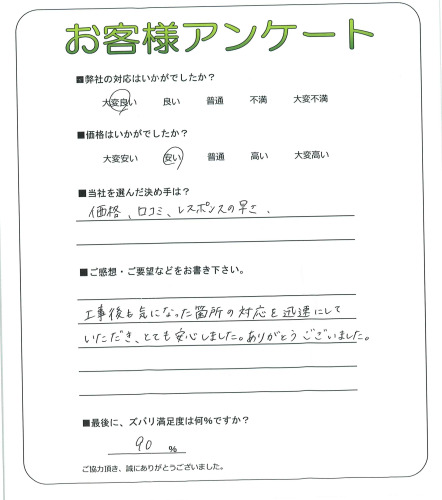 お客様アンケート
■弊社の対応はいかがでしたか?
大変良い 良い 普通 不満 大変不満
■価格はいかがでしたか?
大変安い 安い 普通 高い 大変高い
■当社を選んだ決め手は?
価格、口コミ、レスポンスの早さ、
■ご感想・ご要望などをお書き下さい。
工事後も気になった箇所の対応を迅速にして
いただき、とても安心しました。ありがとうございました。
■最後に、ズバリ満足度は何%ですか?
90 %
ご協力頂き、誠にありがとうございました。